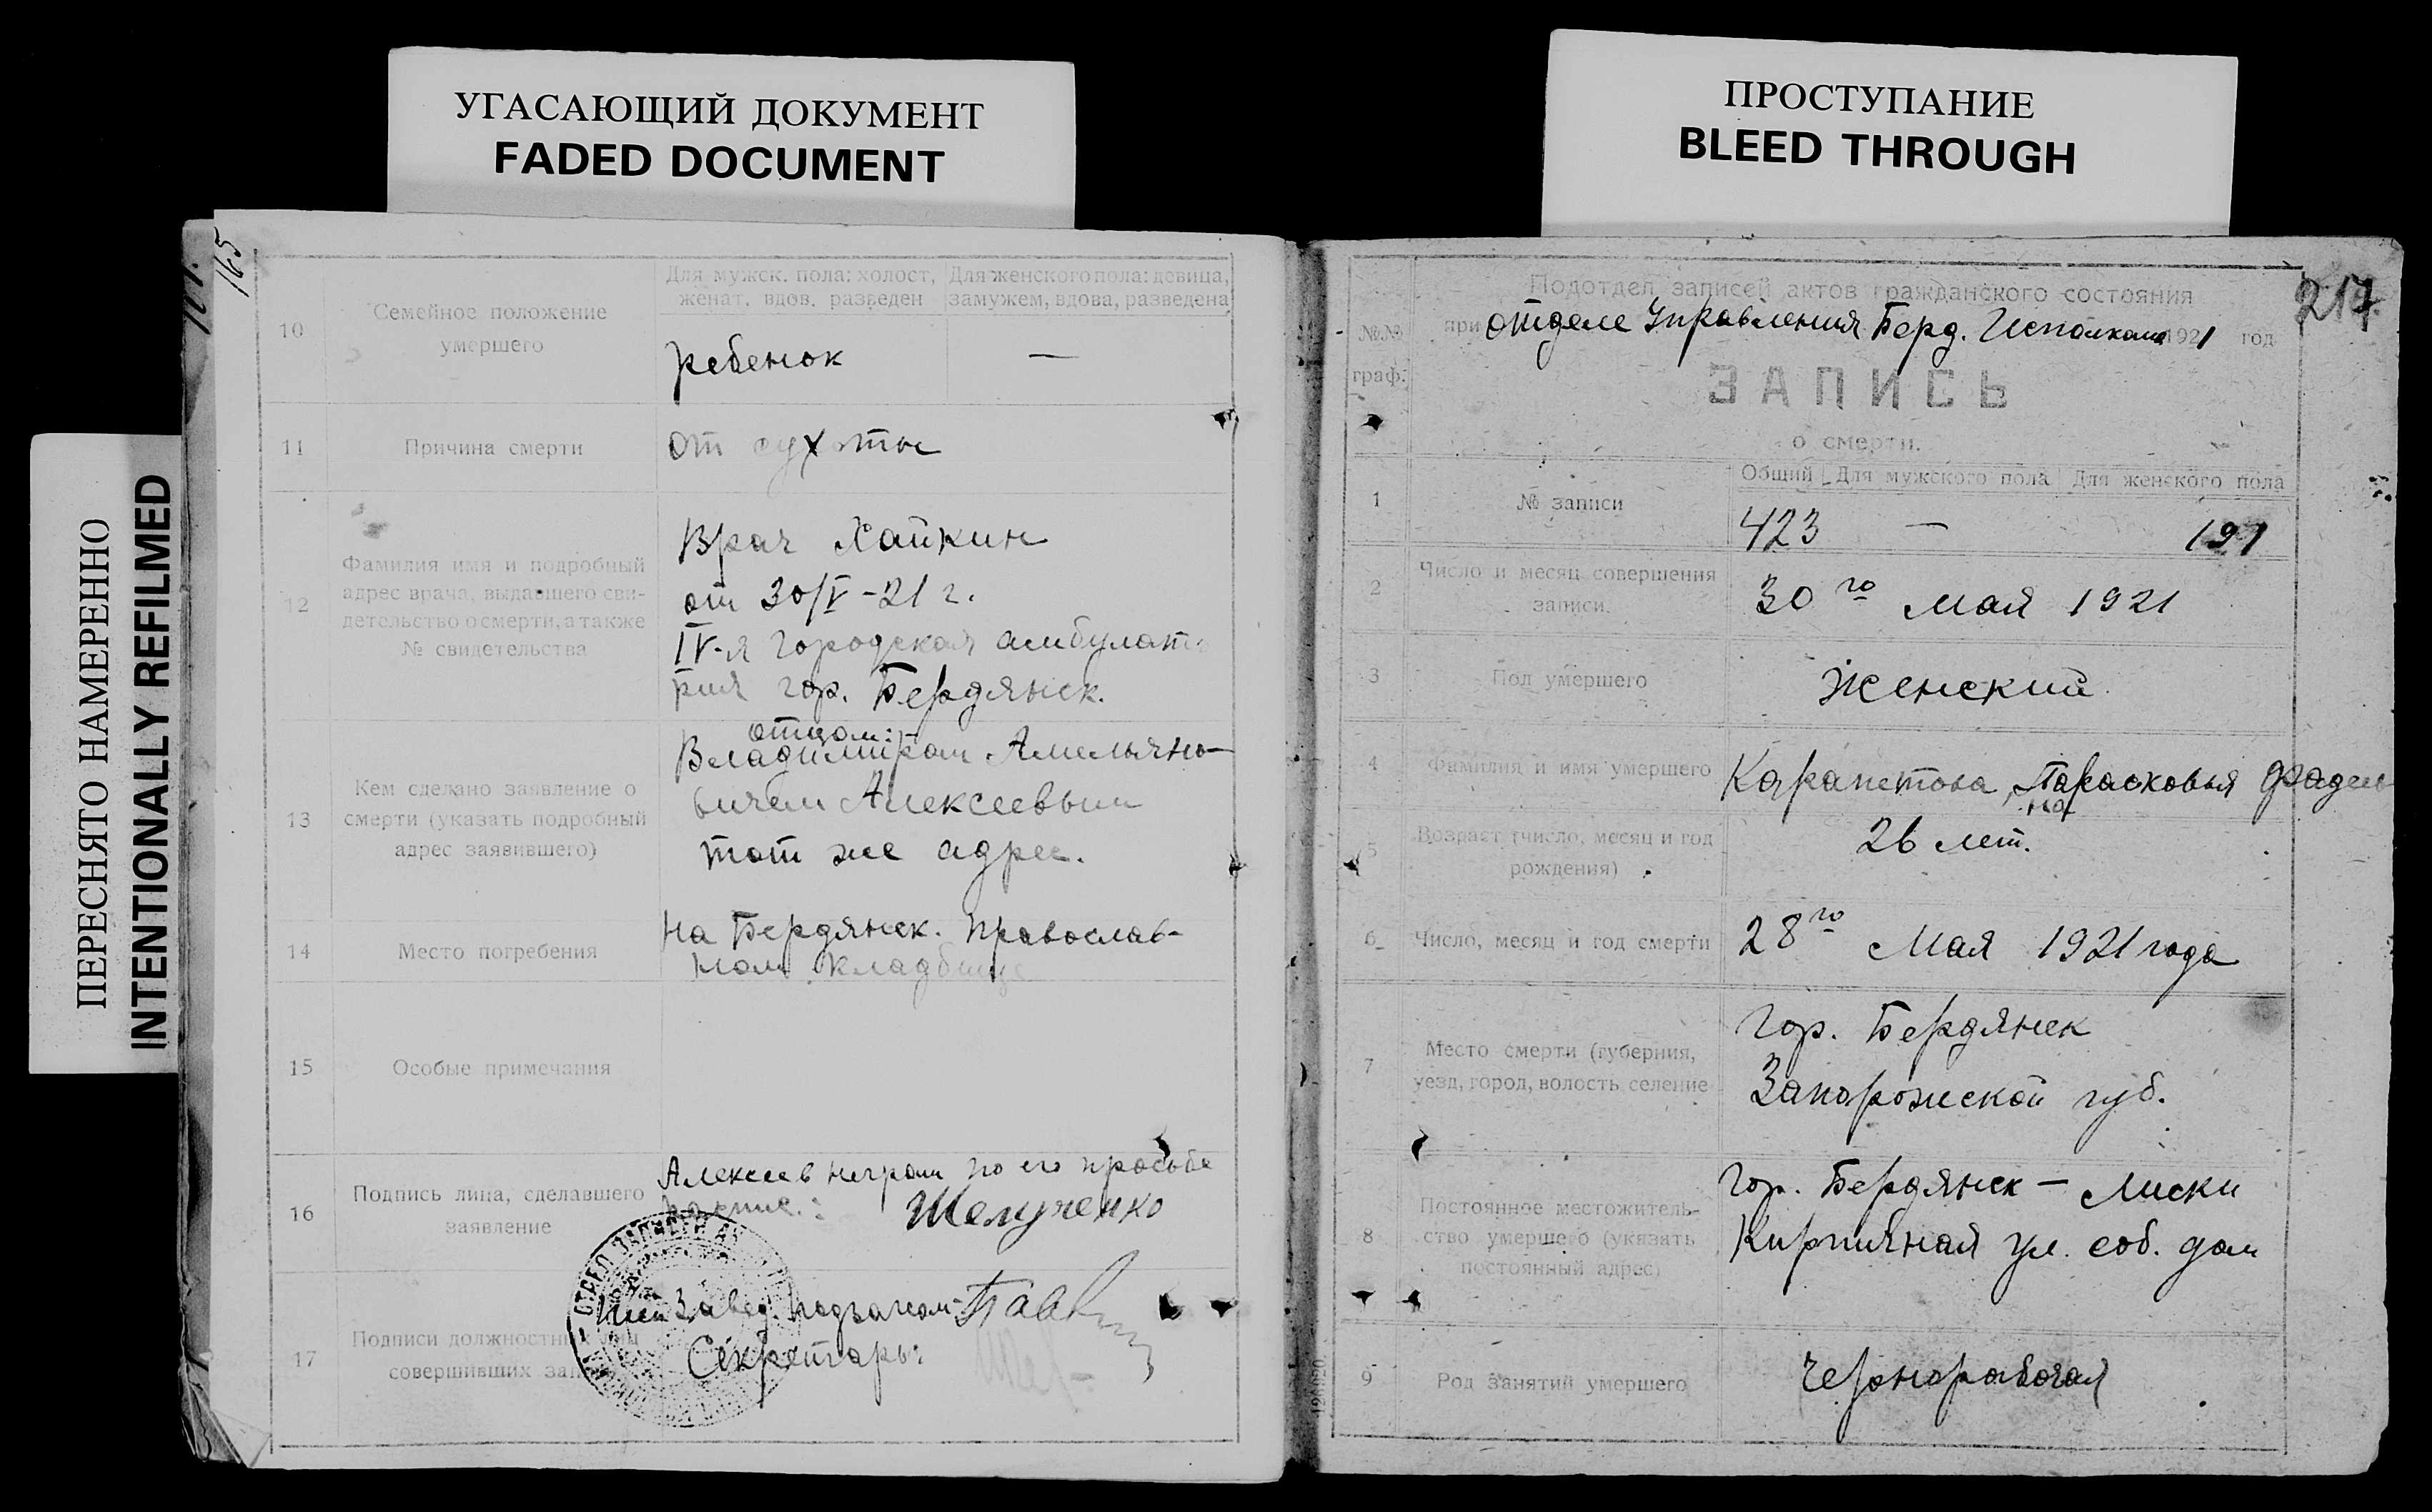 УГАСАЮЩИЙ ДОКУМЕНТ
FADED DOCUMENT
ПРОСТУПАНИЕ
BLEED THROUGH
ПЕРЕСНЯТО НАМЕРЕННО
INTENTIONALLY REFILMED
165
10
Семейное положение
умершего
Для мужск. пола: холост,
женат, вдов, разведен
Для женского пола: девица,
замужем, вдова, разведена
ребенок
—
11
Причина смерти
от сухоты
12
Фамилия имя и подробный
адрес врача, выдавшего сви-
детельство о смерти, а также
№ свидетельства
Врач Хайкин
от 30/V-21 г.
IV-я городская амбулато
рия гор. Бердянск.
13
Кем сделано заявление о
смерти (указать подробный
адрес заявившего)
отцом:
Владимиром Амельяно-
вичем Алексеевым
тот же адрес.
14
Место погребения
на Бердянск. православ-
ном кладбище
15
Особые примечания
16
Подпись лица, сделавшего
заявление
Алексеев неграм по его просьбе
распис.:
Шелученко
17
Подписи должностных лиц
совершивших зап
Завед. подзагсом
Секретарь:
217.
№№
граф.
Подотдел записей актов гражданского состояния
при отделе Управления Берд. Исполкома 1921 год
ЗАПИСЬ
о смерти.
1
№ записи
Общий
Для мужского пола
Для женского пола
423
—
191
2
Число и месяц совершения
записи.
30го мая 1921
3
Пол умершего
Женский
4
Фамилия и имя умершего
Карапетова, Парасковья Фадеев
на
5
Возраст (число, месяц и год
рождения)
26 лет.
6
Число, месяц и год смерти
28го Мая 1921 года
7
Место смерти (губерния,
уезд, город, волость, селение
Гор. Бердянск
Запорожской губ.
8
Постоянное местожитель-
ство умершего (указать
постоянный адрес)
Гор. Бердянск — Лиски
Кирпичная ул. соб. дом
9
Род занятий умершего
Чернорабочая